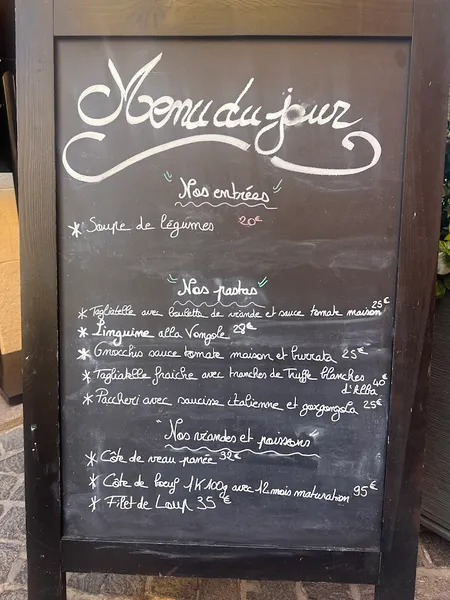 Menu du jour
"Nos entrées"
* Soupe de légumes 20€
"Nos pastas"
* Tagliatelle avec boulette de viande et sauce tomate maison 25€
* Linguine alla Vongole 28€
* Gnocchis sauce tomate maison et burrata 25€
* Tagliatelle fraiche avec tranches de Truffe blanches
d'Alba 40€
* Paccheri avec saucisse italienne et gorgonzola 25€
"Nos viandes et poissons"
* Côte de veau panée 32€
* Côte de boeuf 1K100g avec 12 mois maturation 95€
* Filet de Loup 35€